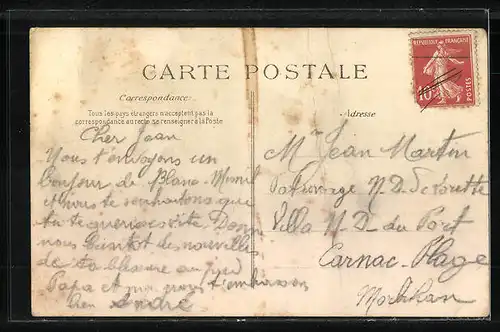 CARTE POSTALE
Correspondance
Tous les pays étrangers n'acceptent pas la
correspondance au recto, se renseigner à la Poste
Adresse
REPUBLIQUE FRANÇAISE
10
POSTES
Cher Jean
Nous t'envoyons un
bonjour de Blanc-Mesnil
et nous te souhaitons que
tu te guerisse vite. Donne
nous bientot des nouvelles
de ta blessure au pied
Papa et moi nous t'embrassons
bien André
Mr Jean Martin
Patronage N.D.
Villa N.D. du Port
Carnac-Plage
Morbihan